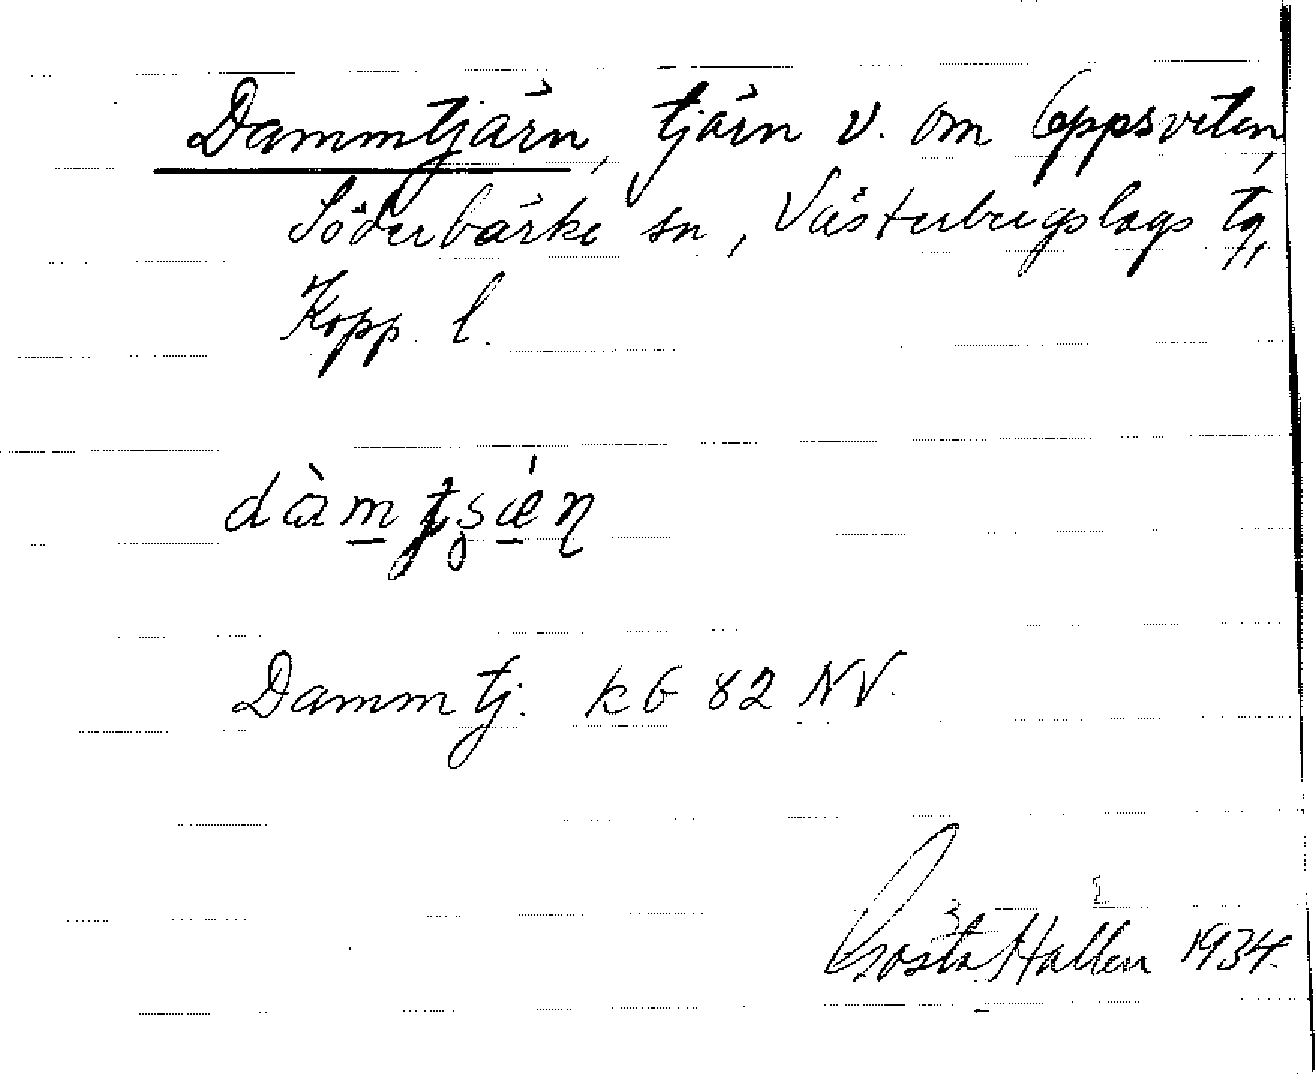 Dammtjärn, tjärn v. om Öppsveten,
Söderbärke sn, Västerbergslags tg,
Kopp. l.
Damm tj. k G 82 NV.
Gösta Hallén 1934.